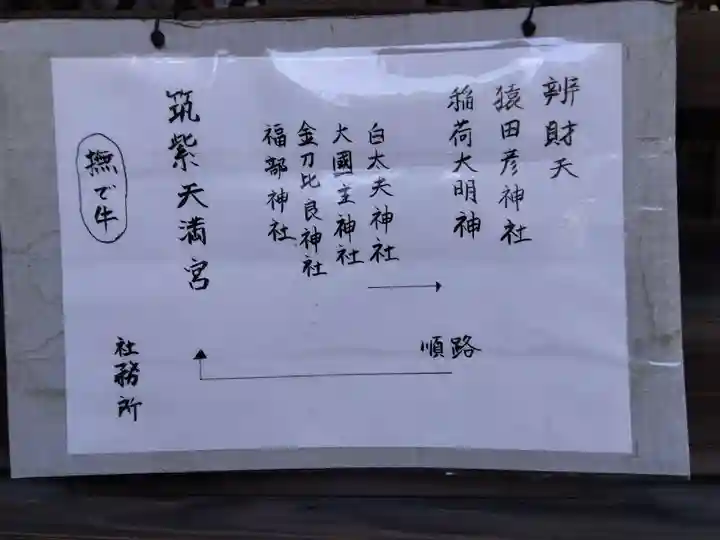 辨財天
猿田彦神社
稲荷大明神
白太夫神社
大國主神社
金刀比良神社
福部神社
筑紫天満宮
撫で牛
順路
社務所